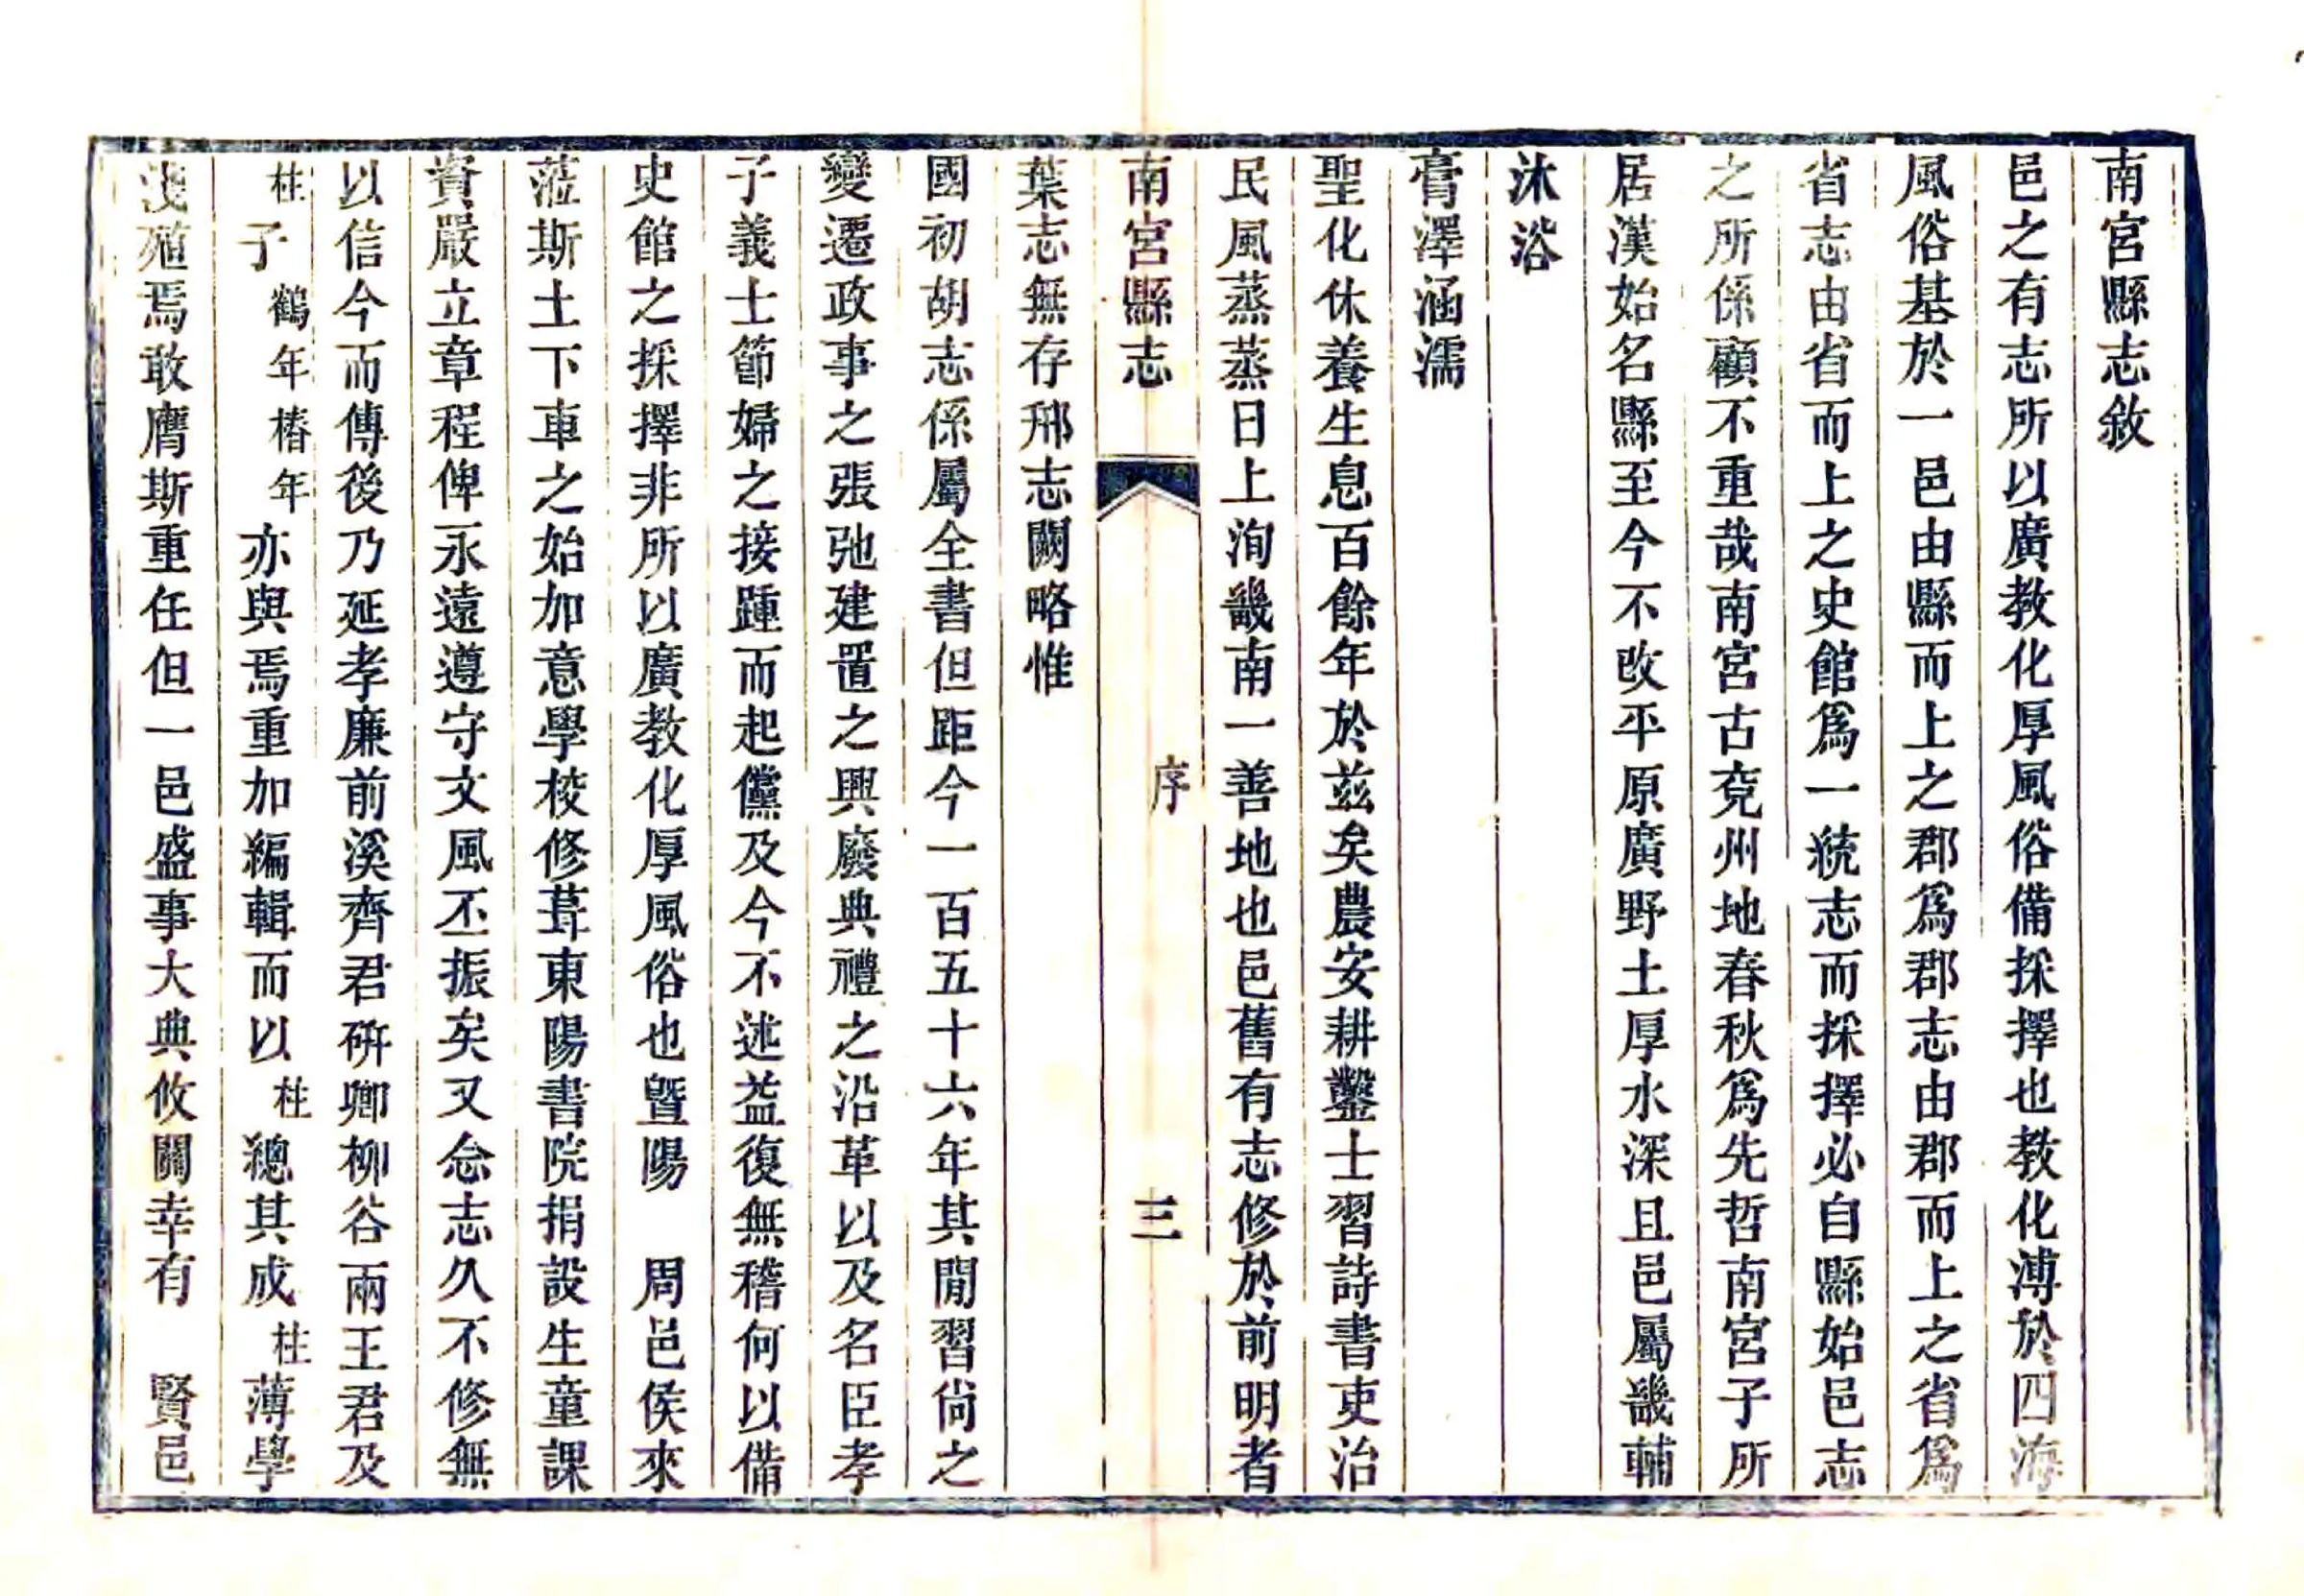 南宮縣志敘
邑之有志所以廣教化厚風俗備採擇也教化溥於四海
風俗基於一邑由縣而上之郡爲郡志由郡而上之省爲
省志由省而上之史館爲一統志而採擇必自縣始邑志
之所係顧不重哉南宮古兗州地春秋爲先哲南宮子所
居漢始名縣至今不改平原廣野土厚水深且邑屬畿輔
沐浴
膏澤涵濡
聖化休養生息百餘年於茲矣農安耕鑿士習詩書吏治
民風蒸蒸日上洵畿南一善地也邑舊有志修於前明者
南宮縣志 序 三
葉志無存邢志闕略惟
國初胡志係屬全書但距今一百五十六年其閒習尙之
變遷政事之張弛建置之興廢典禮之沿革以及名臣孝
子義士節婦之接踵而起儻及今不述益復無稽何以備
史館之採擇非所以廣教化厚風俗也曁陽 周邑侯來
蒞斯土下車之始加意學校修葺東陽書院捐設生童課
資嚴立章程俾永遠遵守文風丕振矣又念志久不修無
以信今而傳後乃延孝廉前溪齊君硏卿柳谷兩王君及
柱子鶴年椿年亦與焉重加編輯而以柱總其成柱薄學
淺殖焉敢膺斯重任但一邑盛事大典攸關幸有 賢邑